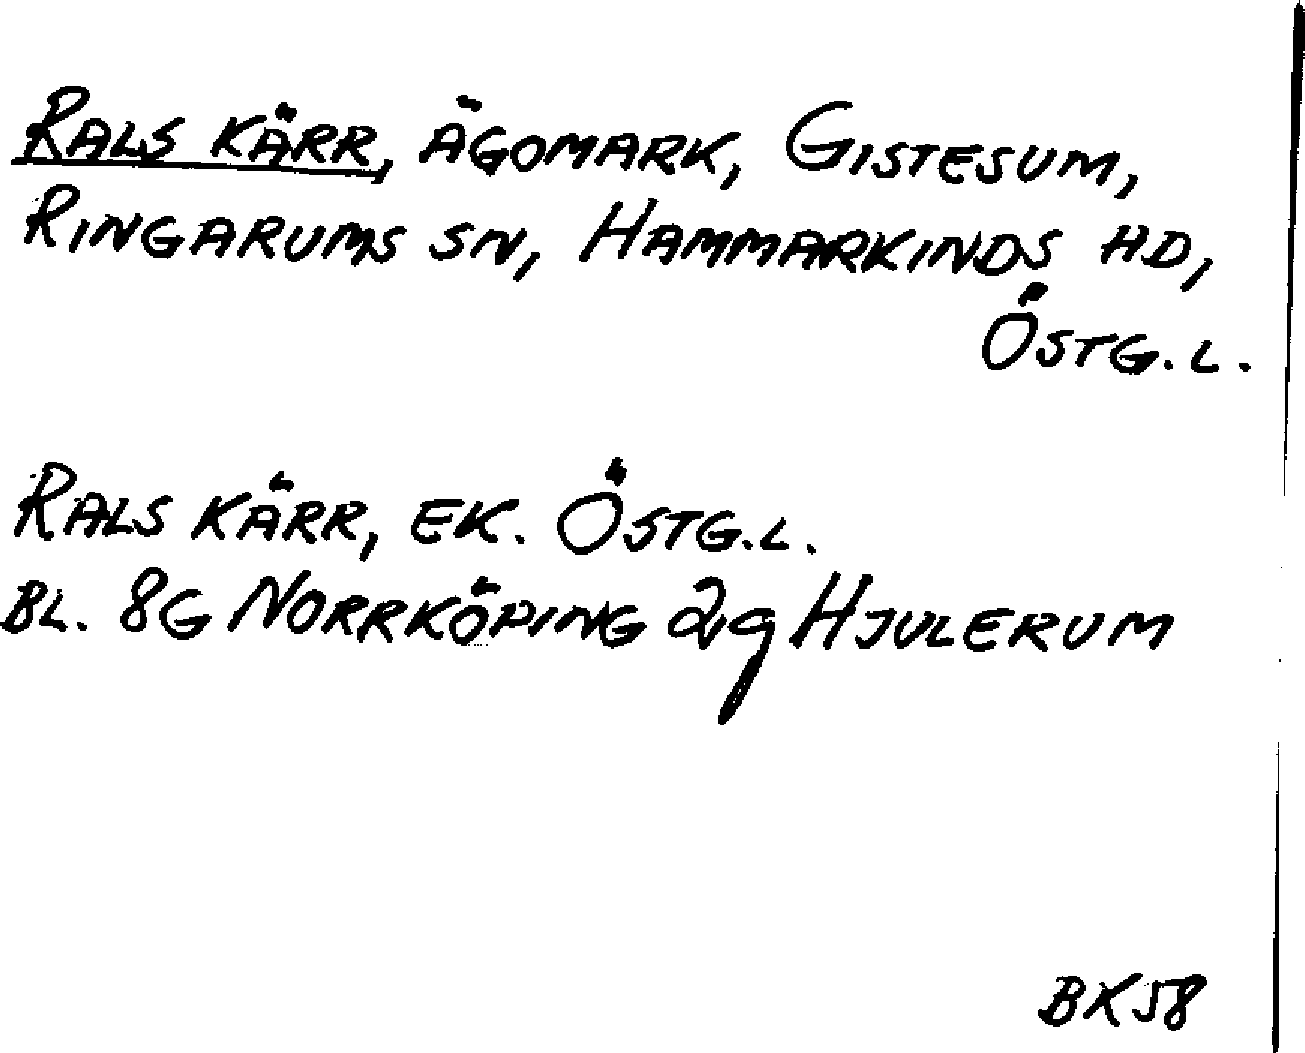 RALS KÄRR, ÄGOMARK, GISTESUM,
RINGARUMS SN, HAMMARKINDS HD,
ÖSTG.L.
RALS KÄRR, EK. ÖSTG.L.
BL. 8G NORRKÖPING 2g HJULERUM
BK58